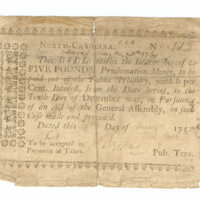 NORTH-CAROLINA. No
THIS BILL entitles the Bearer hereof to
FIVE POUNDS Proclamation Money, to be
paid out of the Public Treasury, with
Cent. Interest, from the Date hereof, to the
Tenth Day of December next, in Pursuance
of an Act of the General Assembly, in such
Case made and provided.
Dated this Day of 175
To be accepted in
Payment of Taxes.
Pub. Trea.